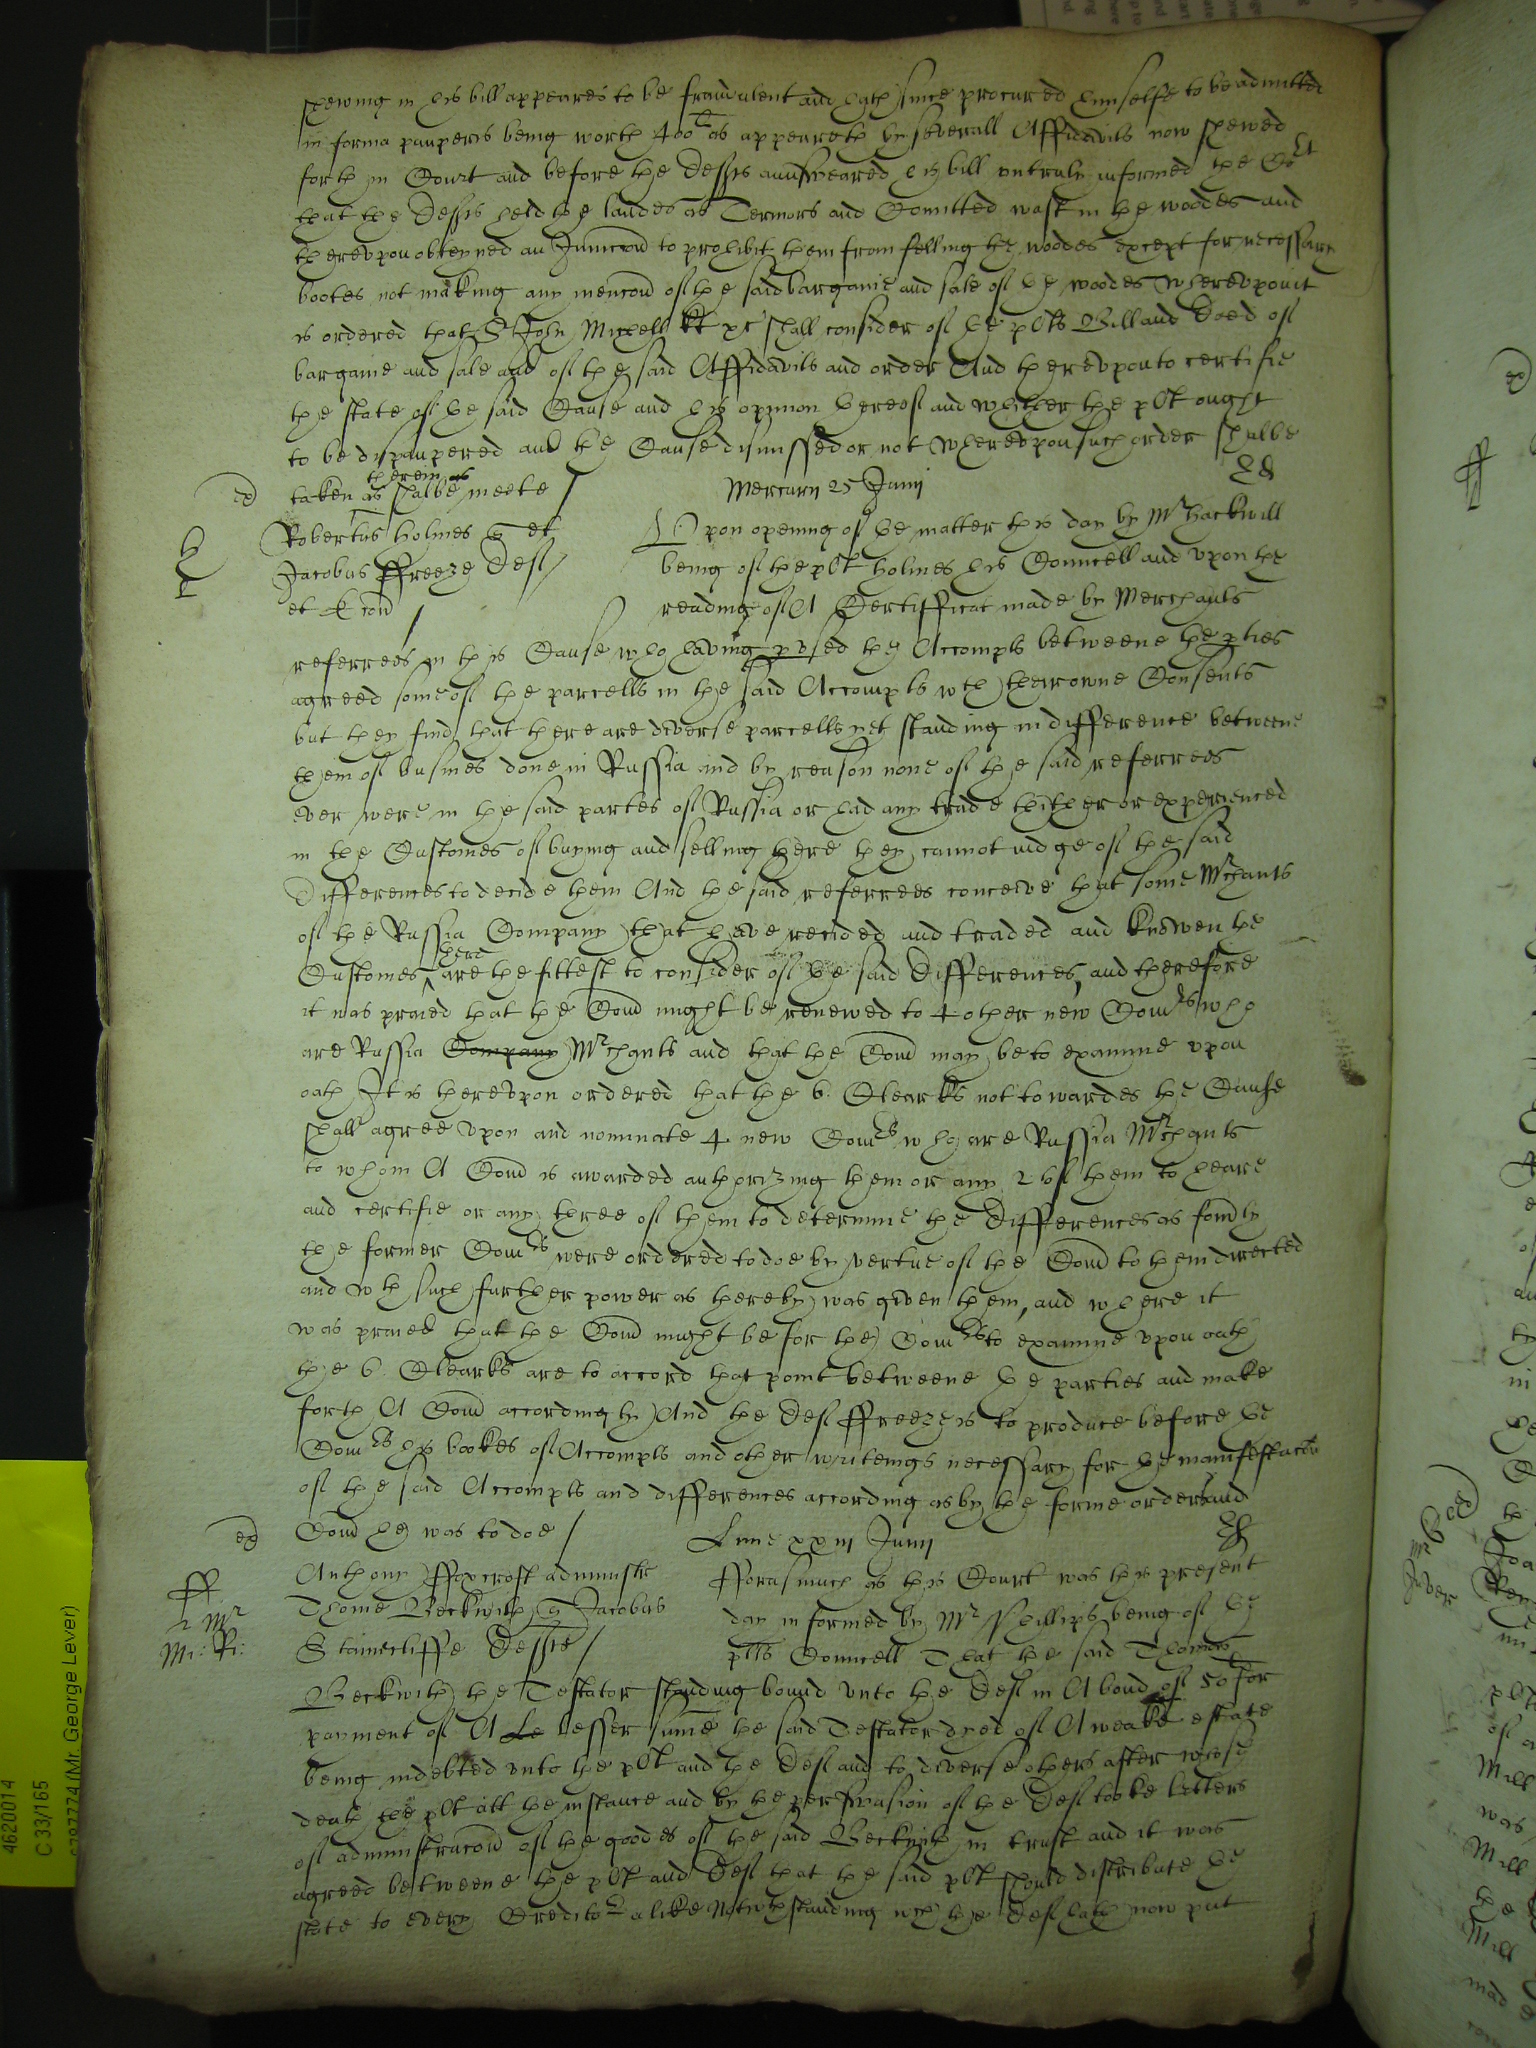 shewing in his bill appeares to be fraudulent and hath since procured himselfe to be admitted
in forma pauperis being worth 400li as appeareth by severall Affidavits now shewed
forth in Court and before the Defts aunsweared his bill untruly informed the Cort
that the Defts held the landes as Termors and Comitted wast in the woodes and
therevpon obteyned an Iniuncon to prohibit them from felling the woodes except for necessary
bootes not making any mencon of the said bargaine and sale of the woodes Wherevpon it
is ordered that Sr John Michell kt xc shall consider of the plts Bill and Deed of
bargaine and sale and of the said Affidavits and order And therevpon to certifie
the state of the said Cause and his opinion thereof and whether the plt ought
to be dispaupered and the Cause dismissed or not Wherevpon such order shalbe
taken therein as shalbe meete / Mercurij 25 Junij
Robertus Holmes q et
Jacobus ffreeze Deft /
et E con /
Vpon opening of the matter this day by Mr Hackwill
being of the plt Holmes his Councell and vpon the
reading of A Certifficat made by Merchants
referrees in this Cause who having pvsed the Accompts betweene the pties
agreed some of the parcells in the said Accompts wth their owne Consents
but they find that there are diverse parcells yet standing in difference betweene
them of busines done in Russia and by reason none of the said referrees
ever were in the said partes of Russia or had any trade thither or experienced
in the Customes of buying and selling there they cannot iudge of the said
Differences to decide them And the said referrees conceive that some Mrchants
of the Russia Company that have recided and traded and knowen the
Customes there are the fittest to consider of the said Differences, and therefore
it was praied that the Com might be renewed to 4 other new Comrs who
are Russia Company Mrchants and that the Com may be to examine vpon
oath It is therevpon ordered that the 6. Clearks not towardes the Cause
shall agree vpon and nominate 4 new Comrs who are Russia Mrchants
to whom A Com is awarded authorizing them or any 2 of them to heare
and certifie or any three of them to determine the Differences as formly
the former Comrs were ordered to doe by vertue of the Com to them directed
and wth such further power as thereby was given them, and where it
was praied that the Com might be for the Comrs to examine vpon oath
the 6. Clearks are to accord that point betweene the parties and make
forth A Com accordingly And the Deft ffreeze is to produce before the
Comrs his bookes of Accompts and other writeings necessary for the manifestacon
of the said Accompts and differences according as by the former order and
Com he was to doe / Lune xxiii Junij
ff
2 Mr
Mi: Ri:
Anthony ffoxcroft administr
Thome Beckwith q Jacobus
Stainecliffe Defte /
fforasmuch as this Court was this present
day informed by Mr Phillips being of the
plts Councell That the said Thomas
Beckwith the Testator standing bound vnto the Deft in A bond of 50li for
payment of A Le lesser sume the said Testator dyed of A weake estate
being indebted vnto the plt and the Deft and to diverse others after whose
death the plt att the instance and by the perswasion of the Deft tooke letters
of administracon of the goodes of the said Beckwith in trust and it was
agreed betweene the plt and Deft that the said plt should distribute the
state to every Creditor alike Notwthstanding wch the Deft hath now put
4620014
C 33/165
(Mr. George Lever)